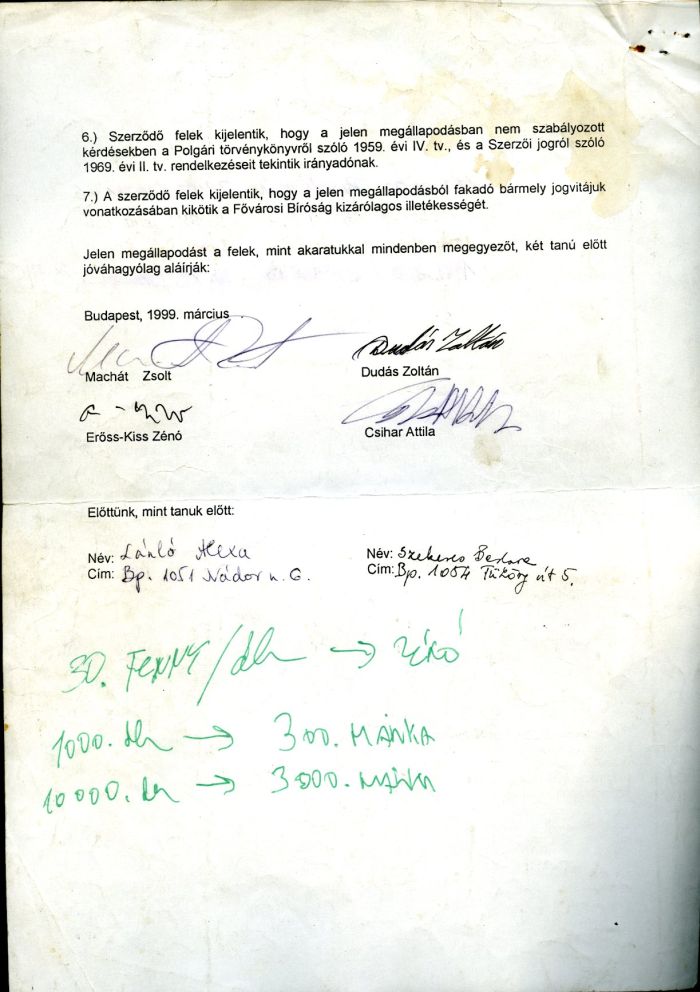 6.) Szerződő felek kijelentik, hogy a jelen megállapodásban nem szabályozott
kérdésekben a Polgári törvénykönyvről szóló 1959. évi IV. tv., és a Szerzői jogról szóló
1969. évi II. tv. rendelkezéseit tekintik irányadónak.
7.) A szerződő felek kijelentik, hogy a jelen megállapodásból fakadó bármely jogvitájuk
vonatkozásában kikötik a Fővárosi Bíróság kizárólagos illetékességét.
Jelen megállapodást a felek, mint akaratukkal mindenben megegyezőt, két tanú előtt
jóváhagyólag aláírják:
Budapest, 1999. március
Dudás Zoltán
Machát Zsolt
Dudás Zoltán
Erőss-Kiss Zénó
Csihar Attila
Előttünk, mint tanuk előtt:
Név: László Alexa
Cím: Bp. 1051 Nádor u. 6.
Név: Szekeres
Cím: Bp. 1054 út 5.
30. FENNY/db → ZÉNÓ
1000. db → 300. MÁRKA
10000. db → 3000. MÁRKA